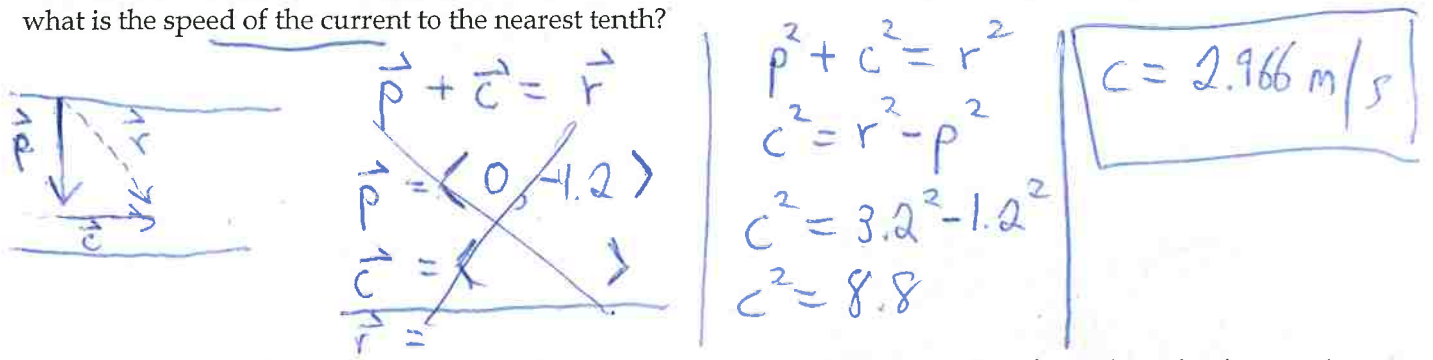 what is the speed of the current to the nearest tenth?
p⃗ r⃗
c⃗
p⃗ + c⃗ = r⃗
p⃗ = ⟨0, -1.2⟩
c⃗ = ⟨ ⟩
r⃗ =
p² + c² = r²
c² = r² - p²
c² = 3.2² - 1.2²
c² = 8.8
c = 2.966 m/s